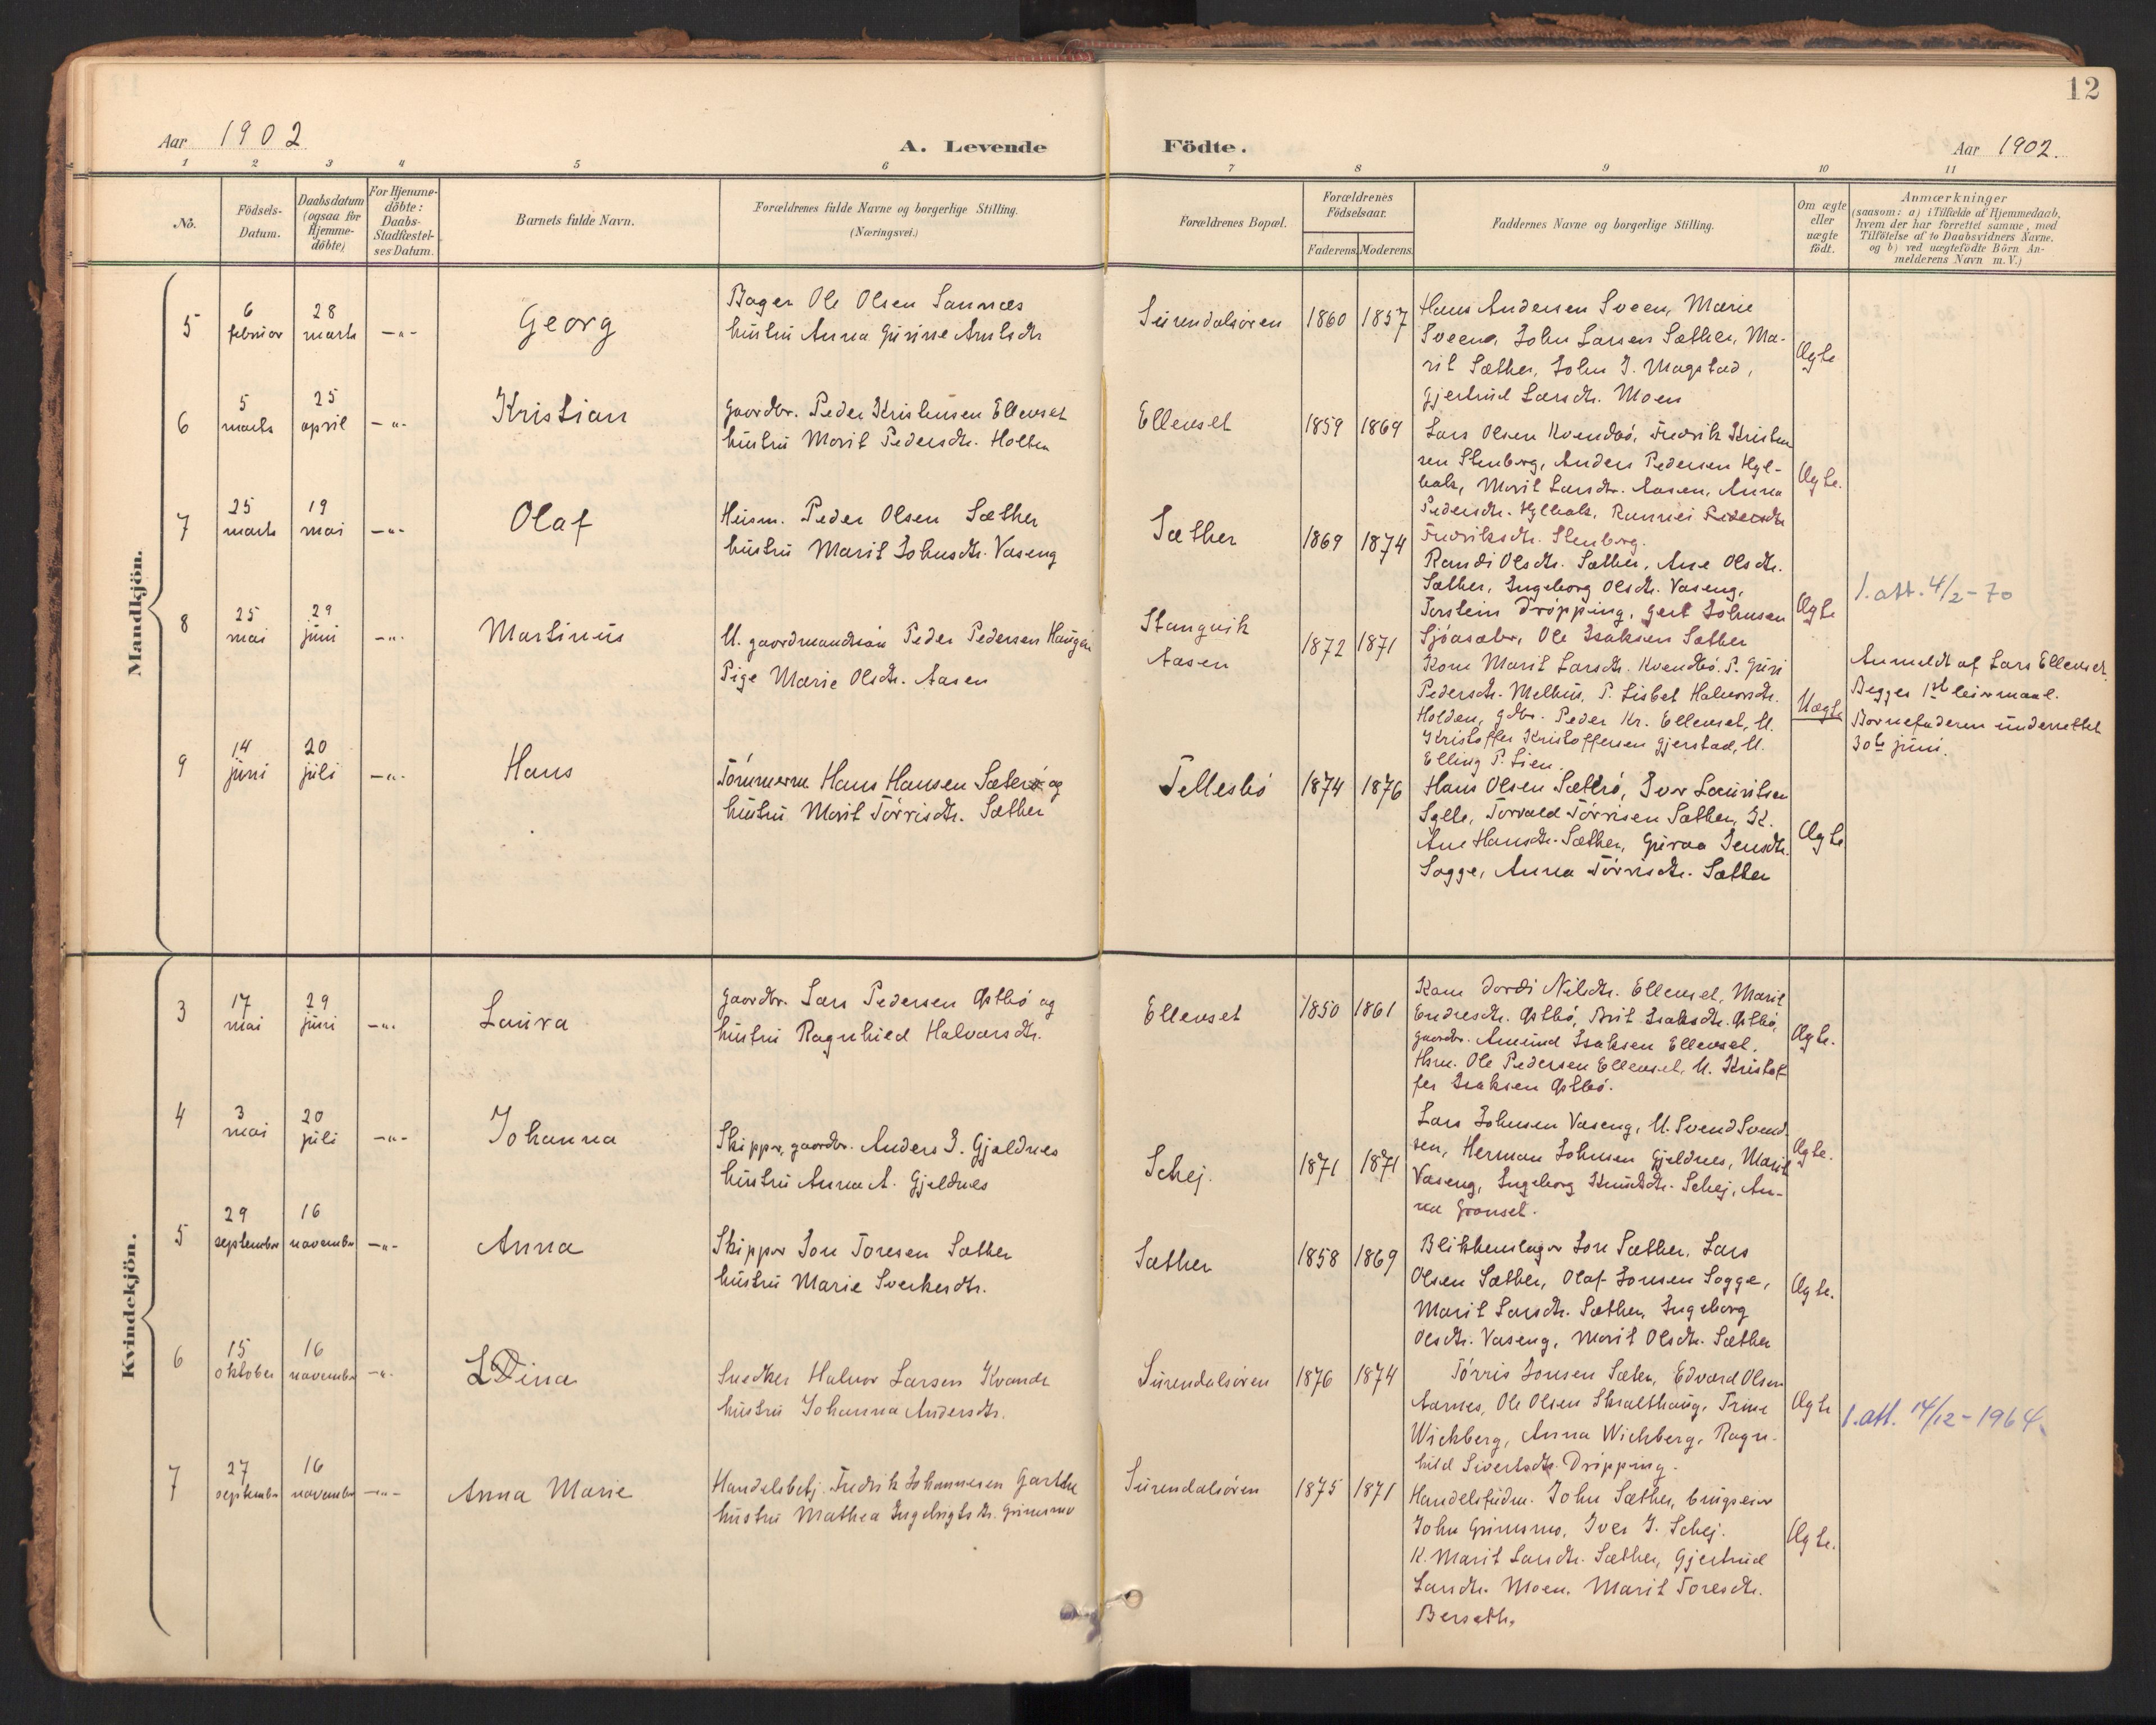 12
Aar 1902
A. Levende Födte.
Aar 1902.
1 2 3 4 5 6 7 8 9 10 11
No.
Födsels-Datum.
Daabsdatum (ogsaa for Hjemme-döbte)
For Hjemme-döbte: Daabs-Stadfæstel-ses Datum.
Barnets fulde Navn.
Forældrenes fulde Navne og borgerlige Stilling. (Næringsvei.)
Forældrenes Bopæl.
Forældrenes Födselsaar.
Faderens. Moderens.
Faddernes Navne og borgerlige Stilling.
Om ægte eller uægte födt.
Anmærkninger
(saasom: a) i Tilfælde af Hjemmedaab,
hvem der har forrettet samme, med
Tilföielse af to Daabsvidners Navne,
og b) ved uægtefödte Börn An-
melderens Navn m. V.)
Mandkjön.
5 6 februar 28 marts -"- Georg
Bager Ole Olsen Sannæs
hustru Anna
Surendalsören 1860 1857
Hans Andersen Sveen, Marie
Sveen, John Larsen Sæther, Ma-
rit Sæther, John J. Magstad,
Gjertrud Larsdtr. Moen
Ægte
6 5 marts 25 april -"- Kristian
Gaardbr. Peder Kristensen Ellevset
hustru Marit Pedersdtr. Holten
Ellevset 1859 1869
Lars Olsen Kvendbö, Fredrik Kristen
sen Stenberg, Anders Pedersen Hyl-
bak, Marit Larsdtr. Aasen, Anna
Pedersdtr. Hylbak, Rannei Pedersdtr
Fredriksdtr. Stenberg.
Ægte.
7 25 marts 19 mai -"- Olaf
Husm. Peder Olsen Sæther
hustru Marit Johnsdtr. Vaseng
Sæther 1869 1874
Randi Olsdtr. Sæther, Ane Olsdtr.
Sæther, Ingeborg Olsdtr. Vaseng,
Torstein Dröpping, Gert Johnsen
Sjöasæter, Ole Isaksen Sæther
Ægte
1. att. 4/2-70
8 25 mai 29 juni -"- Martinus
U. gaardmandssön Peder Pedersen Haugen
Pige Marie Olsdtr. Aasen
Stangvik
Aasen
1872 1871
Kone Marit Larsdtr. Kvendbö. P. Guri
Pedersdtr. Melhus, P. Lisbet Halvorsdtr.
Holden, gdbr. Peder Kr. Ellevset, U.
Kristoffer Kristoffersen Gjerstad, U.
Elling P. Lien.
Uægte
Anmeldt af Lars Ellevset.
Begges 1ste leiermaal.
Barnefaderen underrettet
30te juni.
9 14 juni 20 juli -"- Hans
Tömmerm. Hans Hansen Sæterö og
hustru Marit Törrisdtr. Sæther
Tellesbö 1874 1876
Hans Olsen Sæterö, Iver Lauritsen
Sylte, Torvald Törrisen Sæther, K.
Ane Hansdtr. Sæther, Guraa Jensdtr.
Sogge, Anna Törrisdtr. Sæther
Ægte
Kvindekjön.
3 17 mai 29 juni -"- Laura
Gaardbr. Lars Pedersen Östbö og
hustru Ragnhild Halvorsdtr.
Ellevset 1850 1861
Kone Dordi Nilsdtr. Ellevset, Marit
Endresdtr. Östbö, Brit Isaksdtr. Östbö,
gaardbr. Amund Isaksen Ellevset.
Hsm. Ole Pedersen Ellevset, U. Kristof-
fer Isaksen Östbö.
Ægte.
4 3 mai 20 juli -"- Johanna
Skipper, gaardbr. Anders J. Gjeldnes
hustru Anna A. Gjeldnes
Schej. 1871 1871
Lars Johnsen Vaseng, U. Svend Svend
sen, Herman Johnsen Gjeldnes, Marit
Vaseng, Ingeborg Knudsdtr. Schej, An-
na Grönset.
Ægte.
5 29 september 16 november -"- Anna
Skipper Jon Toresen Sæther
hustru Marie Sverkesdtr.
Sæther 1858 1869
Blikkenslager Jon Sæther, Lars
Olsen Sæther, Olaf Jonsen Sogge,
Marit Larsdtr. Sæther, Ingeborg
Olsdtr. Vaseng, Marit Olsdtr. Sæther
Ægte.
6 15 oktober 16 november -"- Dina
Snedker Halvor Larsen Kvande
hustru Johanna Andersdtr.
Surendalsören 1876 1874
Törris Jonsen Sæter, Edvard Olsen
Aarnes, Ole Olsen Skralthaug, Trine
Wichberg, Anna Wichberg, Ragn-
hild Sivertsdtr. Dröpping.
Ægte
1. att. 14/12-1964.
7 27 september 16 november -"- Anna Marie
Handelsbetj. Fredrik Johannesen Garthe
hustru Mathea Ingebrigtsdtr. Grimsmo
Surendalsören 1875 1871
Handelsfuldm. John Sæther, brugseier
John Grimsmo, Iver J. Schej.
K. Marit Larsdtr. Sæther, Gjertrud
Larsdtr. Moen, Marit Toresdtr.
Bersæth.
Ægte.